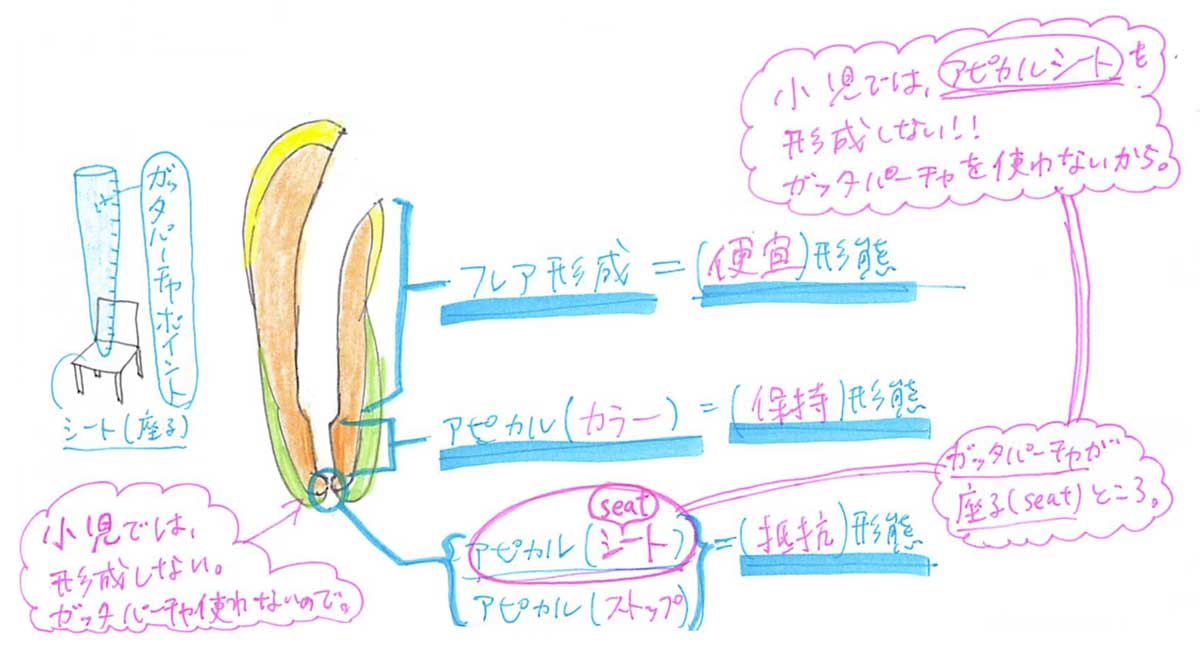 小児では、アピカルシートも
形成しない!!
ガッタパーチャを使わないから。
ガッタパーチャポイント
シート(座る)
フレア形成 = (便宜)形態
アピカル(カラー) = (保持)形態
ガッタパーチャが
座る(seat)ところ。
seat
アピカル(シート)
アピカル(ストップ)
= (抵抗)形態
小児では、
形成しない。
ガッタパーチャ使わないので。